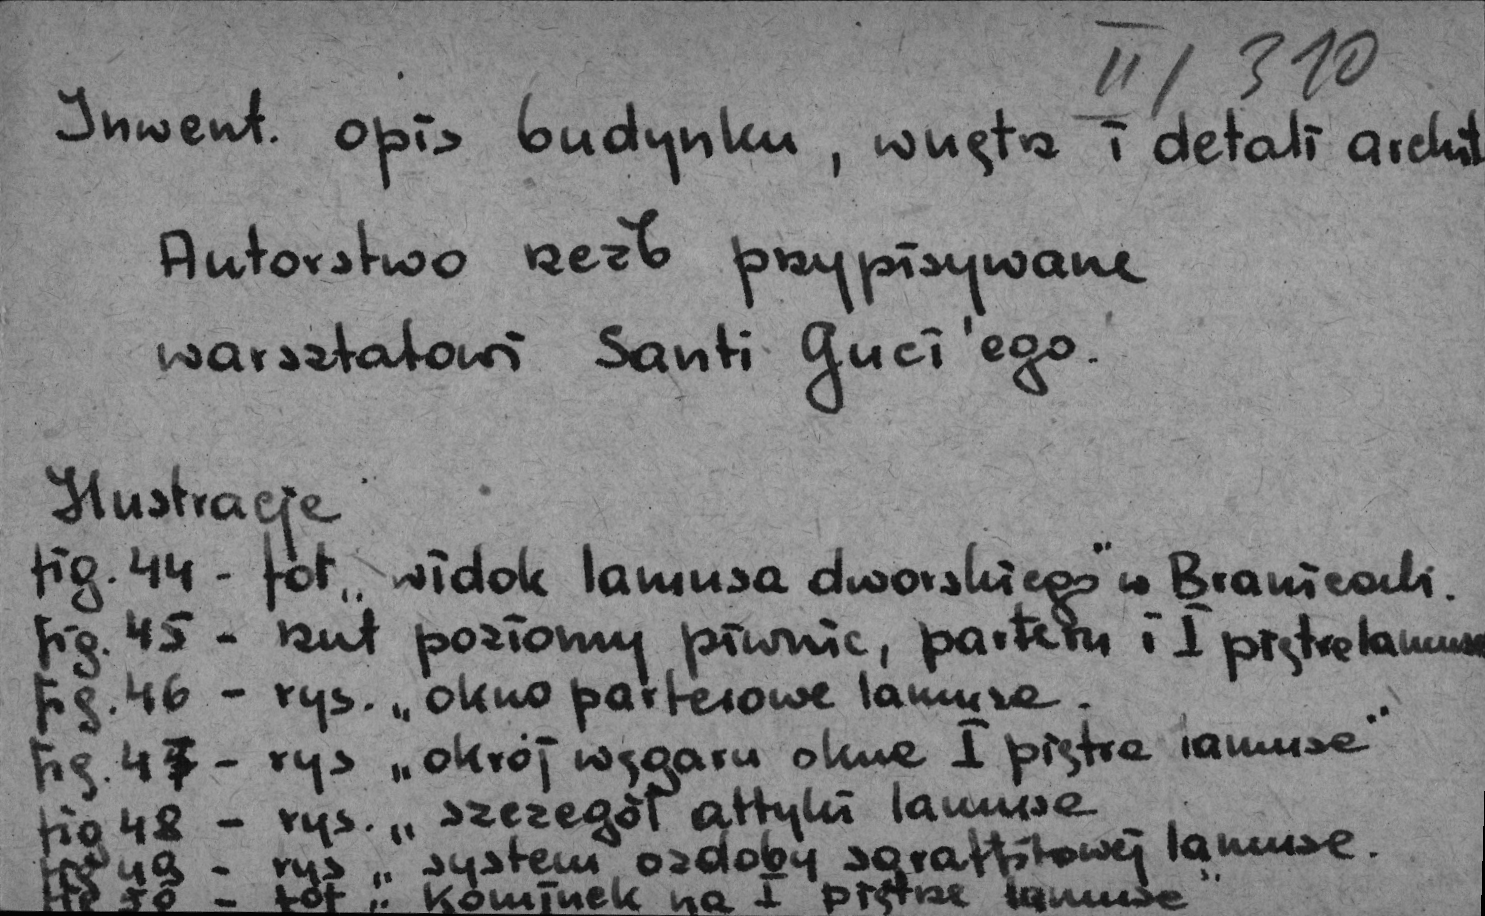 II/310
Inwent. opis budynku, wnętrz i detali archit
Autorstwo rzeźb przypisywane
warsztatowi Santi Guci'ego.
Ilustracje
fig. 44 - fot „widok lamusa dworskiego" w Branicach.
fig. 45 - rzut poziomy piwnic, parteru i I piętra lamusa
fig. 46 - rys. „okno parterowe lamusa.
fig. 47 - rys „okrój węgaru okna I piętra lamusa"
fig 48 - rys. „szczegół attyki lamusa
fig 49 - rys „system ozdoby sgraffitowej lamusa.
fig 50 - fot „kominek na I piętrze lamusa"